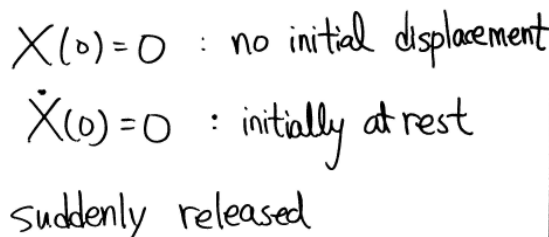 X(0) = 0 : no initial displacement
Ẋ(0) = 0 : initially at rest
suddenly released